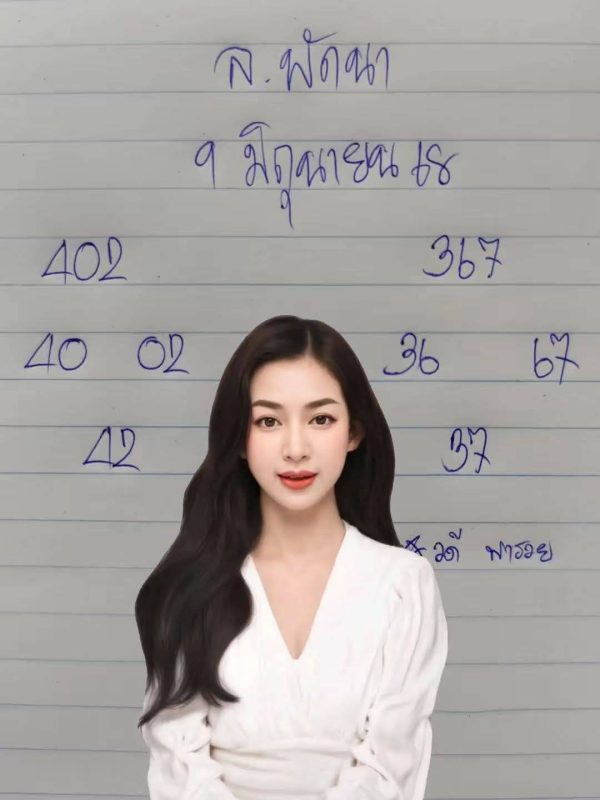 ล.พัฒนา
9 มิถุนายน 68
402 367
40 02 36 67
42 37
วดี พารวย